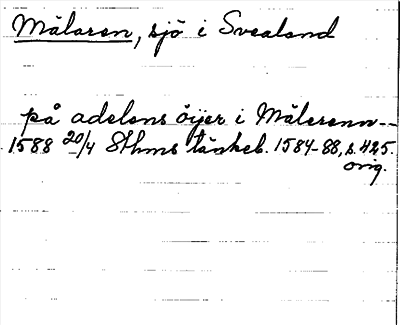 Mälaren, sjö i Svealand
på adelens öijer i Mälerenn--
1588 20/4 Sthms tänkeb. 1584-88, s. 425.
orig.